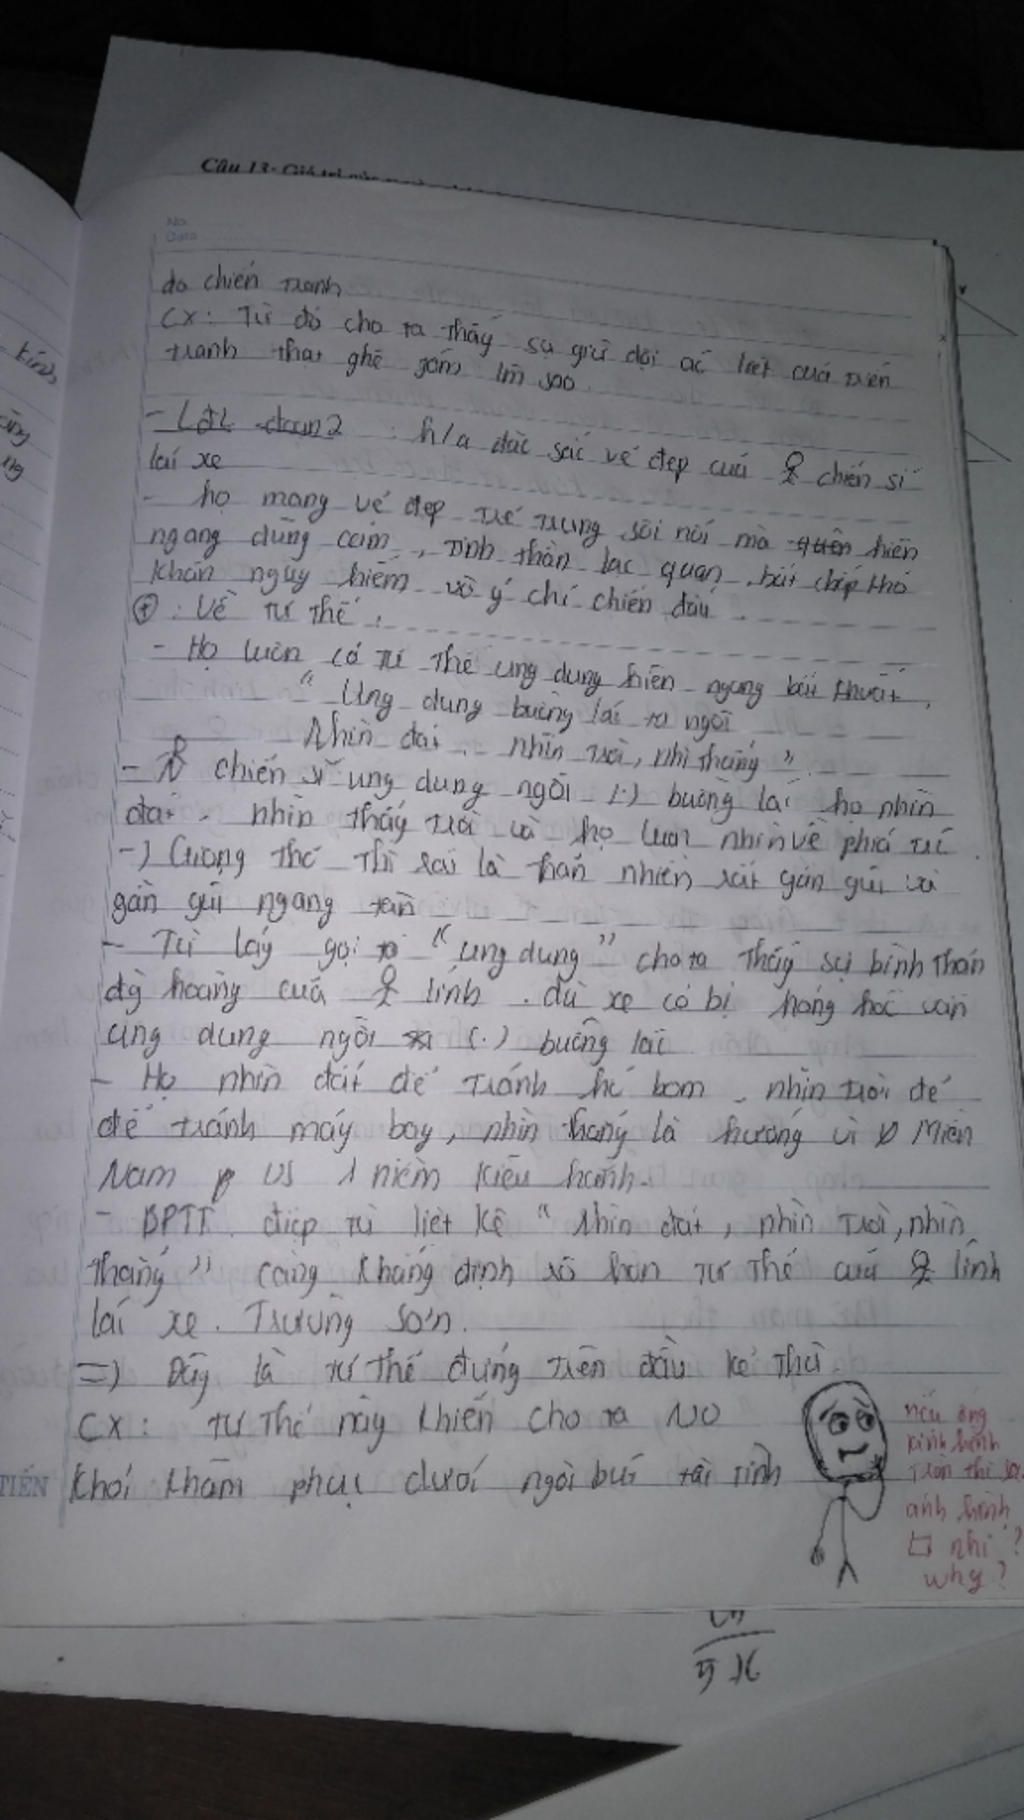 Câu 13: Giá trị
No.
Date
do chiến tranh
CX: Từ đó cho ta thấy sự giữ dội ác liệt của chiến
tranh thật ghê gớm làm sao.
- LĐL đoạn 2 : h/a đặc sắc vẻ đẹp của chiến sĩ
lái xe
- họ mang vẻ đẹp trẻ trung sôi nổi mà hiên
ngang dũng cảm, tinh thần lạc quan, bất chấp khó
khăn nguy hiểm và ý chí chiến đấu.
+ : Về tư thế.
- Họ luôn có tư thế ung dung hiên ngang bất khuất,
" Ung dung buồng lái ta ngồi
Nhìn đất, nhìn trời, nhì thẳng"
- chiến sĩ ung dung ngồi (.) buồng lái họ nhìn
đất, nhìn thấy trời và họ luôn nhìn về phía trc
-) Giọng thơ thì rất là thản nhiên rất gần gũi và
gần gũi ngang tàn
- Từ láy gợi tả "ung dung" cho ta thấy sự bình thản
đg hoàng của lính. dù xe có bị hỏng hóc vẫn
ung dung ngồi (.) buồng lái
- Họ nhìn đất để tránh hố bom, nhìn trời để
để tránh máy bay, nhìn thẳng là hướng vì Miền
Nam vs 1 niềm kiêu hãnh.
- BPTT điệp từ liệt kê "Nhìn đất, nhìn trời, nhìn
thẳng" càng khẳng định rõ hơn tư thế của lính
lái xe. Trường Sơn.
=) Đây là tư thế đứng trên đầu kẻ thù.
CX: tư thế này khiến cho ta ko
khỏi khâm phục dưới ngòi bút tài tình
nếu ông
kính hình
tròn thì sao
ảnh hình
□ nhỉ?
why?
TIẾN
kính